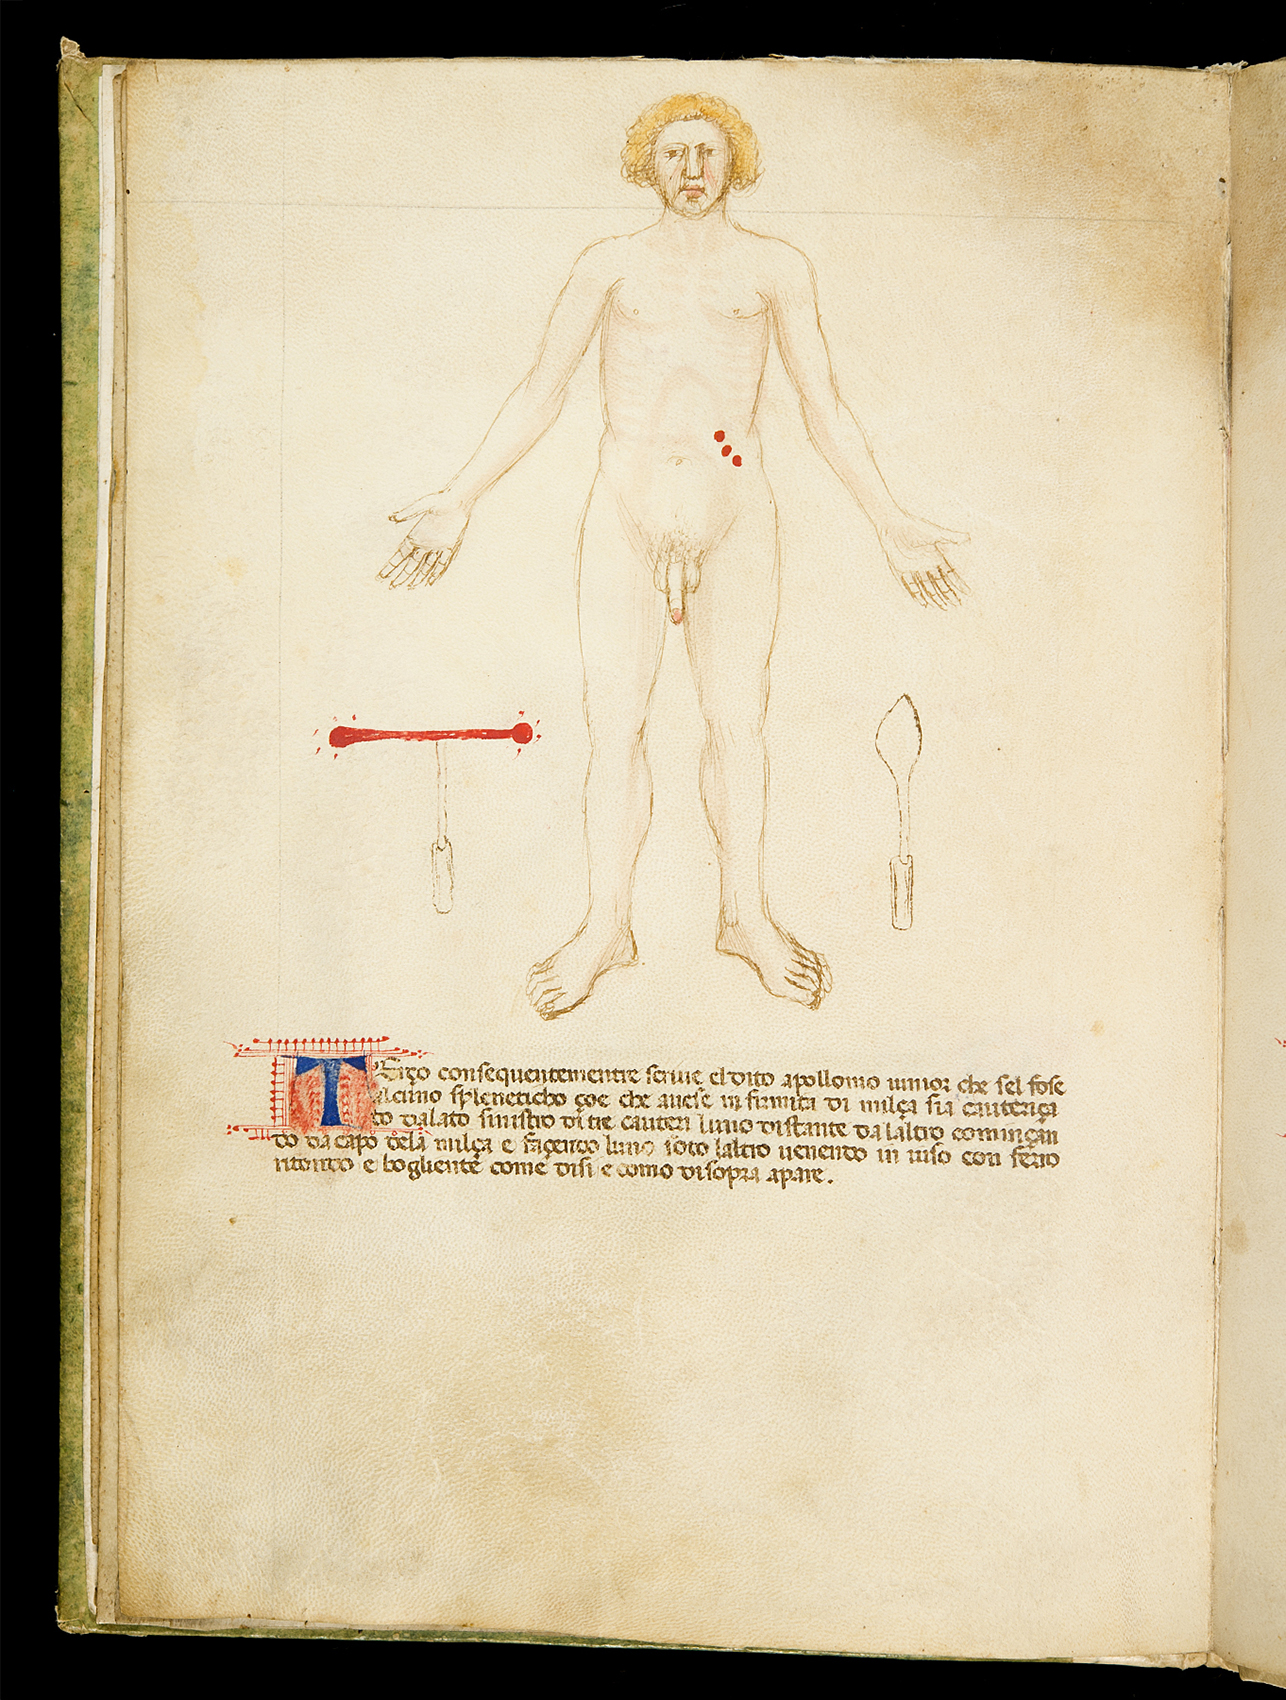 Terço consequentementre scriue el dito apolloniominor che sel fose
alcuno spleneticho çoe che auese in firmita di milça sia cauteriça
to dalato sinistro di tre cauteri luno distante dalaltro cominçan
do da capo dela milça e façendo luno soto laltro uenendo in iuso con fero
ritondo e bogliente come disi e como disopra apare.